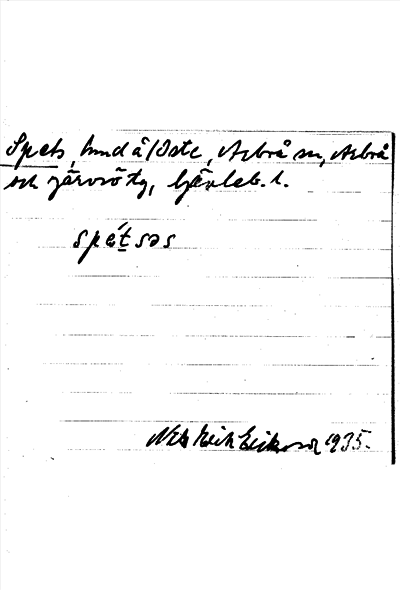 Spets, hund å /Öste, Arbrå sn, Arbrå
och Järvsö tg, Gävleb. l.
spétses
Nils Erik Eriksson 1935.